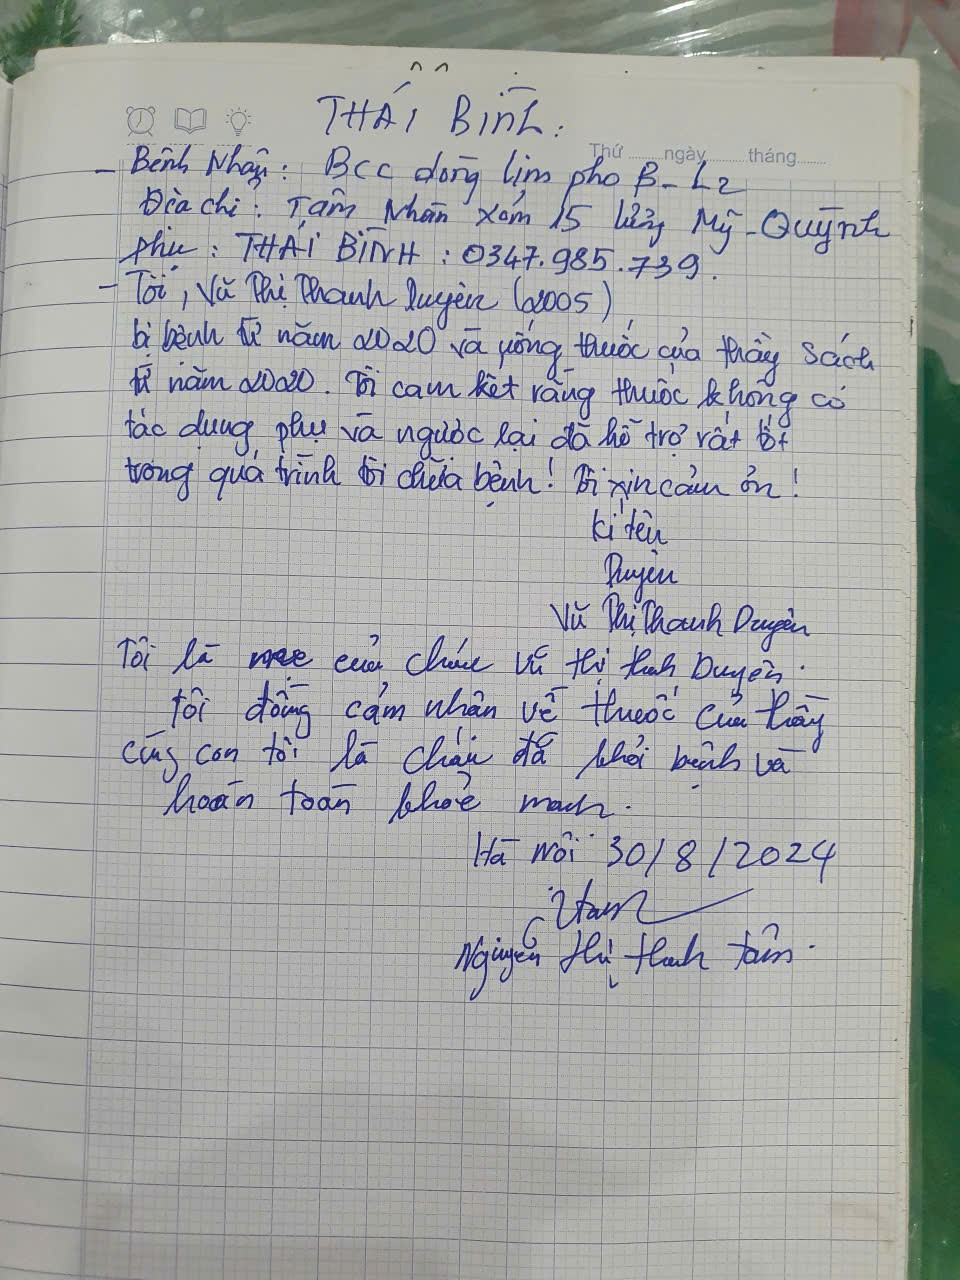 THÁI BÌNH:
Thứ ........ ngày ......... tháng .......
- Bệnh Nhân: BCC dòng lim pho B - L2
Địa chỉ: Tâm Nhân xóm 15 làng Mỹ - Quỳnh
phụ: THÁI BÌNH: 0347.985.739.
- Tôi, Vũ Thị Thanh Duyên (2005)
bị bệnh từ năm 2020 và uống thuốc của thầy Sách
từ năm 2020. Tôi cam kết rằng thuốc không có
tác dụng phụ và ngược lại đã hỗ trợ rất tốt
trong quá trình tôi chữa bệnh! Tôi xin cảm ơn!
Kí tên
Duyên
Vũ Thị Thanh Duyên
Tôi là của cháu Vũ thị thanh Duyên.
tôi đồng cảm nhân về thuốc của thầy
cùng con tôi là cháu đã khỏi bệnh và
hoàn toàn khỏe mạnh.
Hà Nôi 30/8/2024
Nguyễn thị thanh tâm.